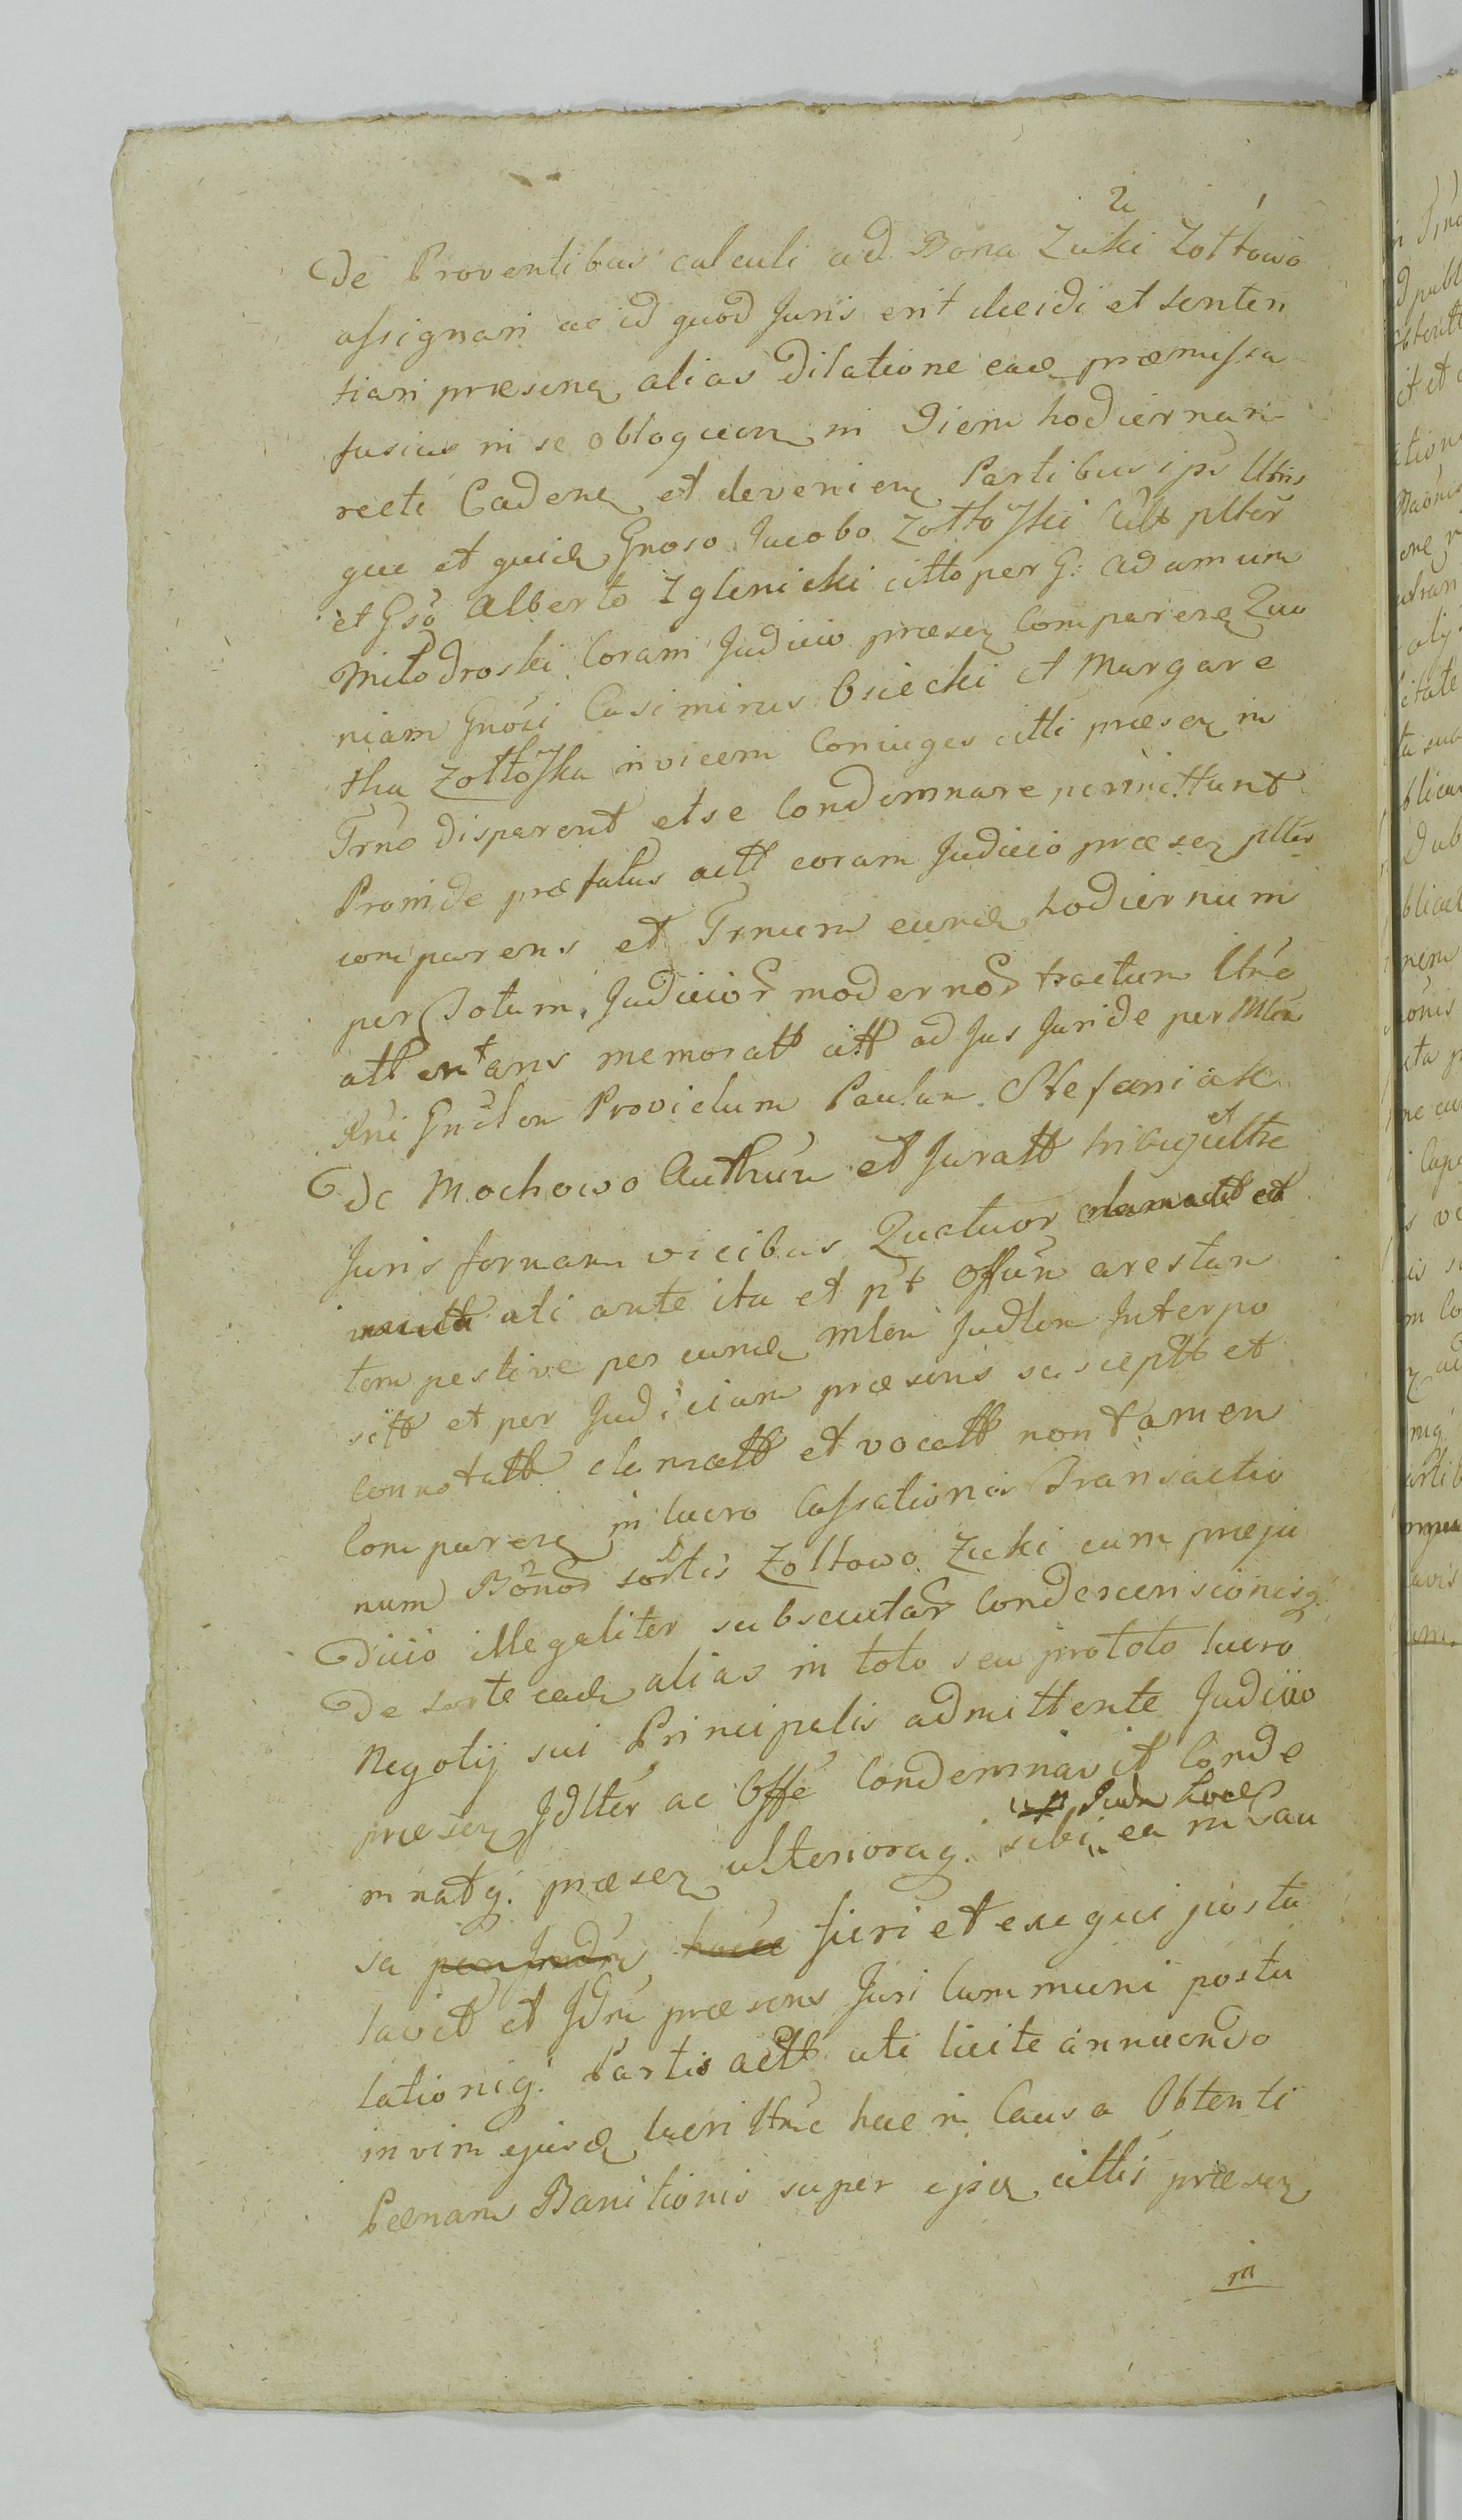 De Proventibus calculi ad Bona Zuki Zołtowo
assignari ac id quod Juris erit decidi et senten
tiari præsenq alias Dilatione eaq præmissa
fusius in se obloquen in Diem hodiernam
recte Cadenq et devenienq Partibus ips Utris
que et quidq Gnoso Jacobo Zołtoski
et Gso Alberto Zglinicki citto per G: Adamum
Miłodroski Coram Judicio præsenq Comparenq Quo
niam Gnosi Casimirus Osiecki et Margare
tha Zołtoska invicem Coniuges citti præsenq in
Trno disparent et se Condemnare permittunt
Proinde præfatus actt coram Judicio præsenq plter
comparens et Trnum eunq hodiernum
per Totum Judicior modernor tractum Utne
attentans memoratt citt ad Jus Juride per Mlem
Rni Gnrlem Providum Paulum Stefaniak
De Mochowo Authum et Juratt tribus et ultre
Juris formam vicibus Quatuor clamatt et
uti ante ita et pt Offum arestum
tempestive per eunq Mlem Judlem Interpo
sitt et per Judicium præsens susceptt et
connotatt clamatt et vocatt non tamen
Comparenq in lucro Cassationis Transactio
num Bonor sortis Zołtowo Zuki cum præju
dicio illegaliter subsecutar Condescensionisq
De sorte eadq alias in toto seu pro toto lucro
Negotij sui Principalis admittente Judicio
præsenq Jdlter ac Offe Condemnavit Conde
mnatq. præsenq ulterioraq. sibi ea in Cau
sa fieri et exequi postu
lavit et Jdm præsens Juri Communi postu
lationiq. Partis actt uti licite annuendo
in vim ejusq lucri Utne hac in Causa Obtenti
Pœnam Banitionis super ipsq cittis præsenq
in